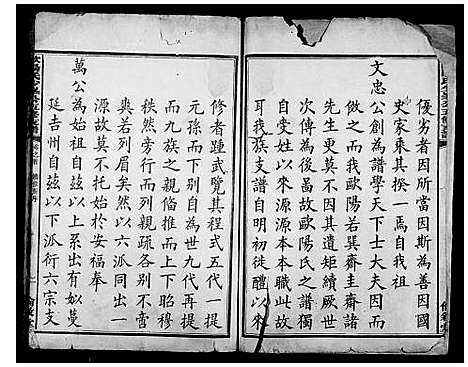 優劣者因所當因斯為善因國
史家乘其揆一焉自我祖
文忠公創為譜學天下士大夫因而
倣之而我歐陽若巽齋圭齋諸
先生更莫不因其遺矩續厥世
次傳為後啚故歐陽氏之譜獨
詳世之以來源源本本職此故
耳我族支譜自明初徙醴以來
修者踵武覽其程式五代一提
元孫而下別自為世九代再提
而九族之親偹推而上下昭穆
秩然旁行斜列親疏各別不啻
爽若列眉矣然以六派同出一
源故莫不托始於安福奉
萬公為始祖自玆以上系出有如蔓
延吉州自玆以下派衍六宗支